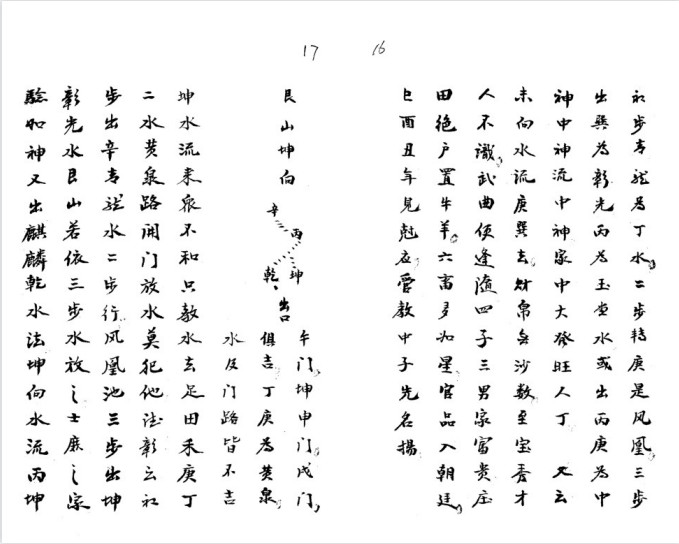 17
16
初步青龍為丁水二步轉庚是凤凰三步
出巽為彰光丙為玉堂水或出丙庚為中
神中神流中神家中大發旺人丁 又云
未向水流庚巽去財帛無沙數至宝秀才
人不識武曲便逢随四子三男家富贵庄
田绝户置牛羊六畜多如星官品入朝廷
巳酉丑年見尅应管教中子先名揚
艮山坤向
辛
丙
乾
坤
出口
午门坤申门戍门
俱吉丁庚為黄泉
水及门路皆不吉
坤水流来泉不和只教水去足田禾庚丁
二水黄泉路開门放水莫犯他法彰云初
步出辛青龙水二步行风凰池三步出坤
彰光水艮山若依三步水放之士庶之家
驗如神又出麒麟乾水法坤向水流丙坤